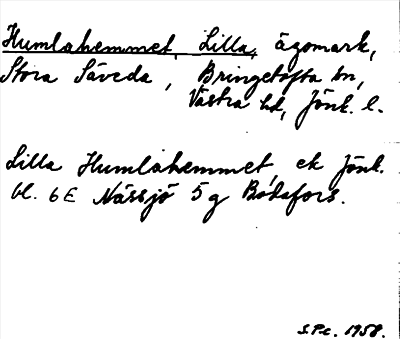 Humlahemmet, Lilla, ägomark,
Stora Säveda, Bringetofta sn,
Västra hd, Jönk. l.
Lilla Humlahemmet, ek Jönk.
bl. 6E Nässjö 5g Bodafors.
S.P-c. 1958.